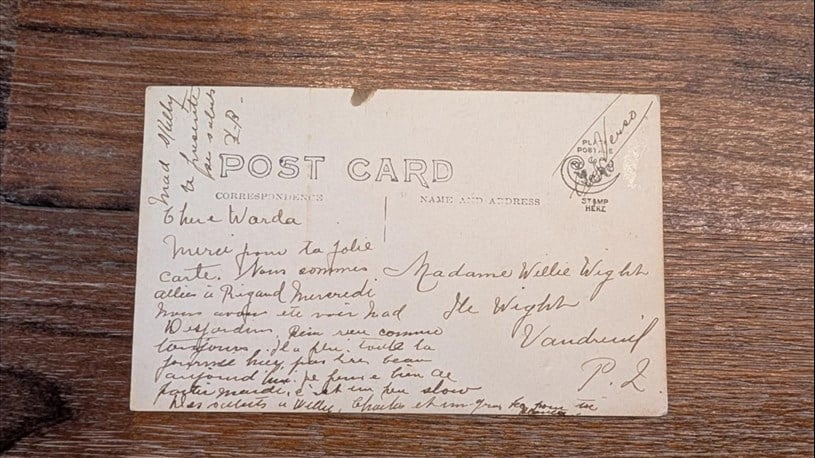 Mad Skelly
te presente
ses saluts
L B.
POST CARD
CORRESPONDENCE
NAME AND ADDRESS
PLACE
POSTAGE
STAMP
HERE
Verso
Chere Warda
Merci pour ta jolie
carte. Nous sommes
allés à Rigaud Mercredi
nous avons ete voir Mad
Desjardins, comme
toujours. Il a plu toute la
journée hier, pas tres beau
aujourd'hui. je pense bien de
partir mardi, c'est un peu slow
Mes saluts a Willy, Charles et un gros pour toi
Madame Willie Wight
Ile Wight
Vaudreuil
P. Q.